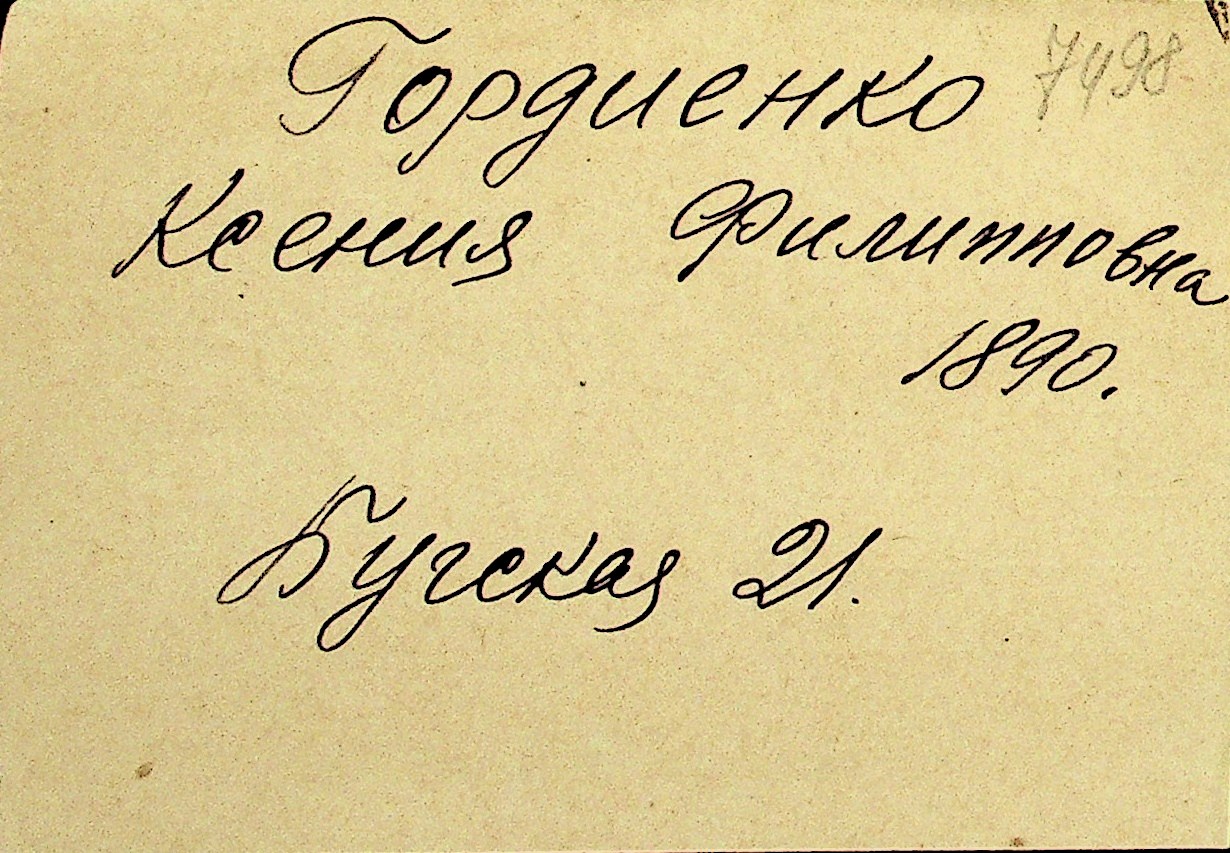 Гордиенко 7498
Ксения Филипповна
1890.
Бугская 21.